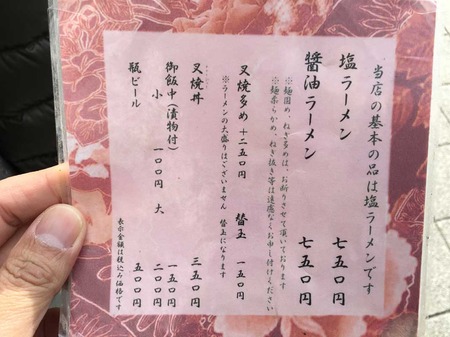 当店の基本の品は塩ラーメンです
塩ラーメン 七五〇円
醤油ラーメン 七五〇円
※麺固め、ねぎ多めは、お断りさせて頂いております
※麺柔らかめ、ねぎ抜き等は遠慮なくお申し付けください
叉焼多め +二五〇円 替玉 一五〇円
※ラーメンの大盛りはございません 替玉になります
叉焼丼 三五〇円
御飯中(漬物付) 一五〇円
小 一〇〇円 大 二〇〇円
瓶ビール 五〇〇円
表示金額は税込み価格です